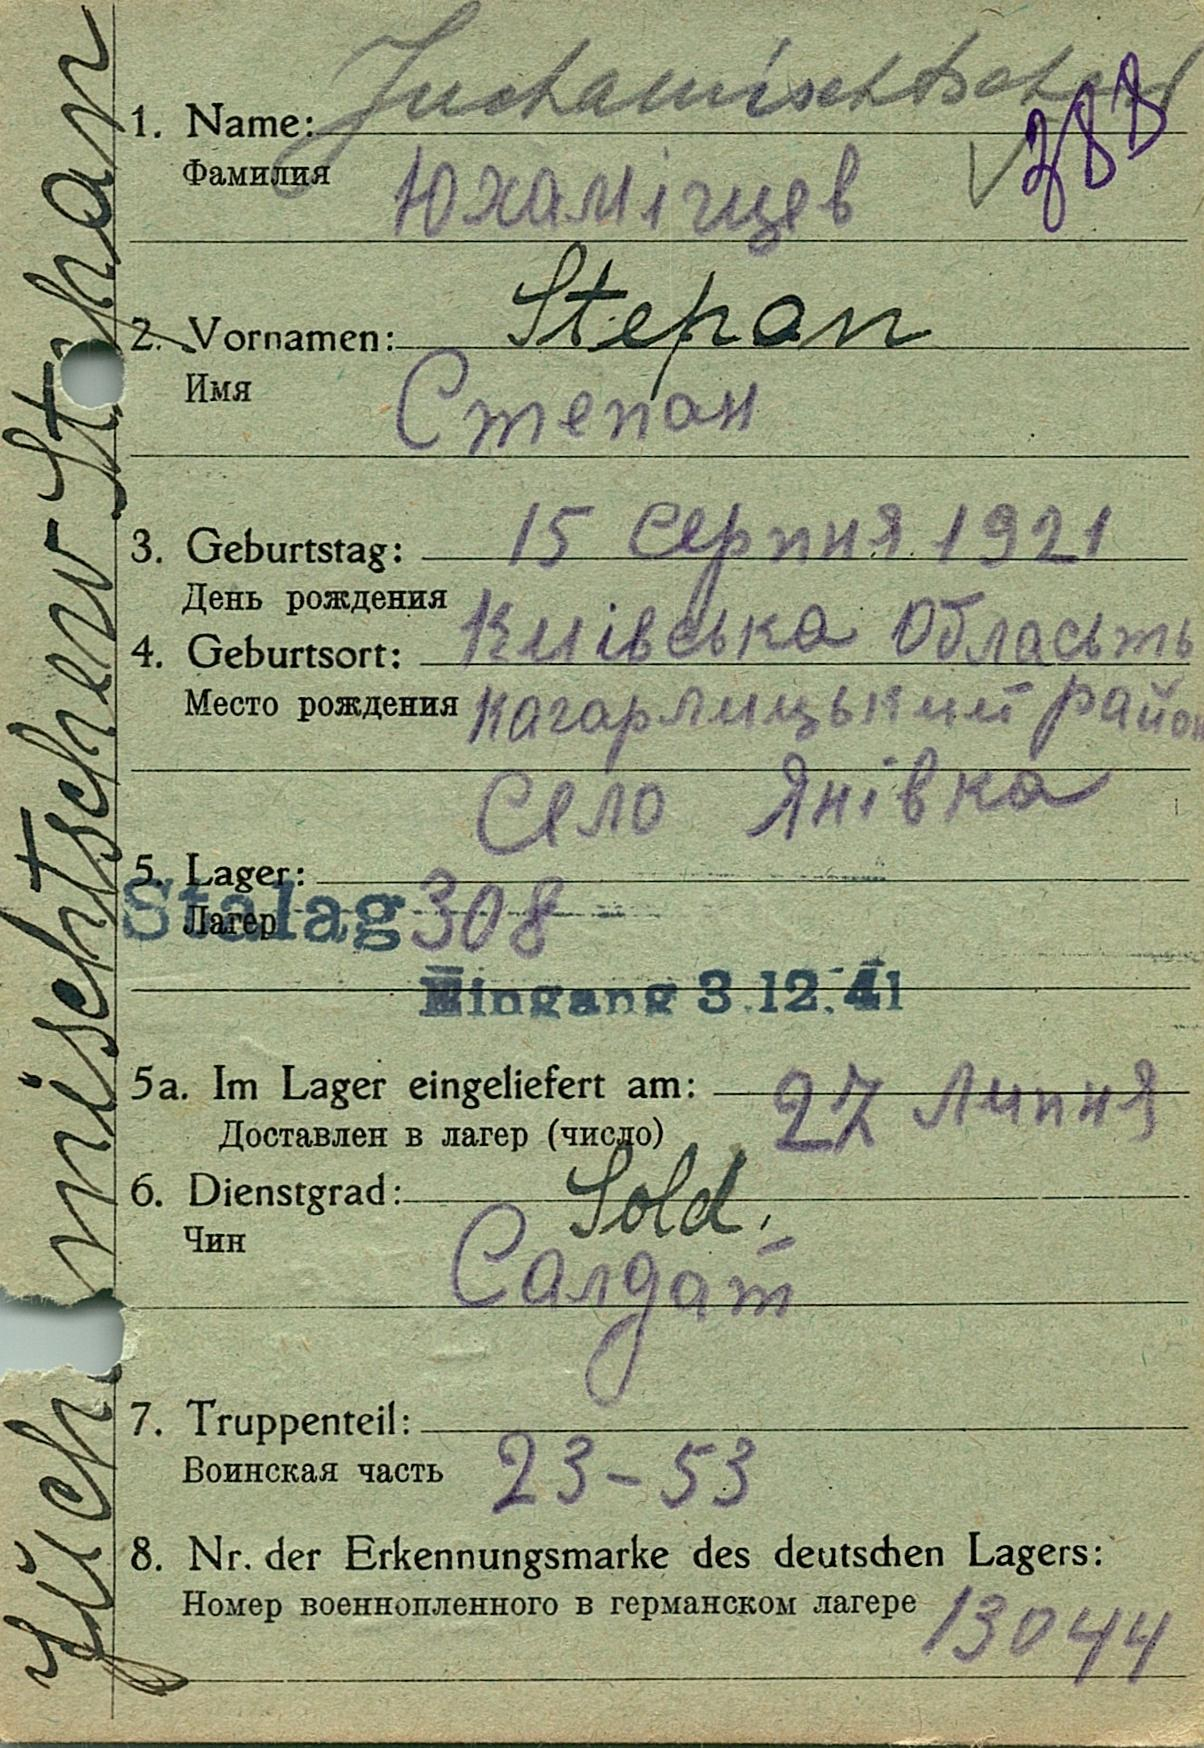 1. Name:
Фамилия Юхамічцев
2. Vornamen: Stepan
Имя Степан
3. Geburtstag: 15 Серпня 1921
День рождения
4. Geburtsort: Київська Обласьть
Место рождения Кагарлицький район
Село Янівка
5. Lager:
Лагер
Stalag 308
Eingang 3.12.41
5a. Im Lager eingeliefert am: 27 Липня
Доставлен в лагер (число)
6. Dienstgrad: Sold.
Чин Салдат
7. Truppenteil:
Воинская часть 23-53
8. Nr. der Erkennungsmarke des deutschen Lagers:
Номер военнопленного в германском лагере 13044